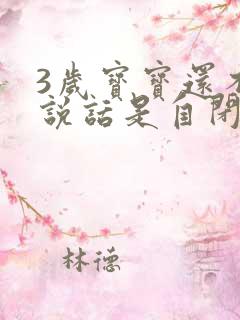 3歲寶寶還不
說話是自閉
林德